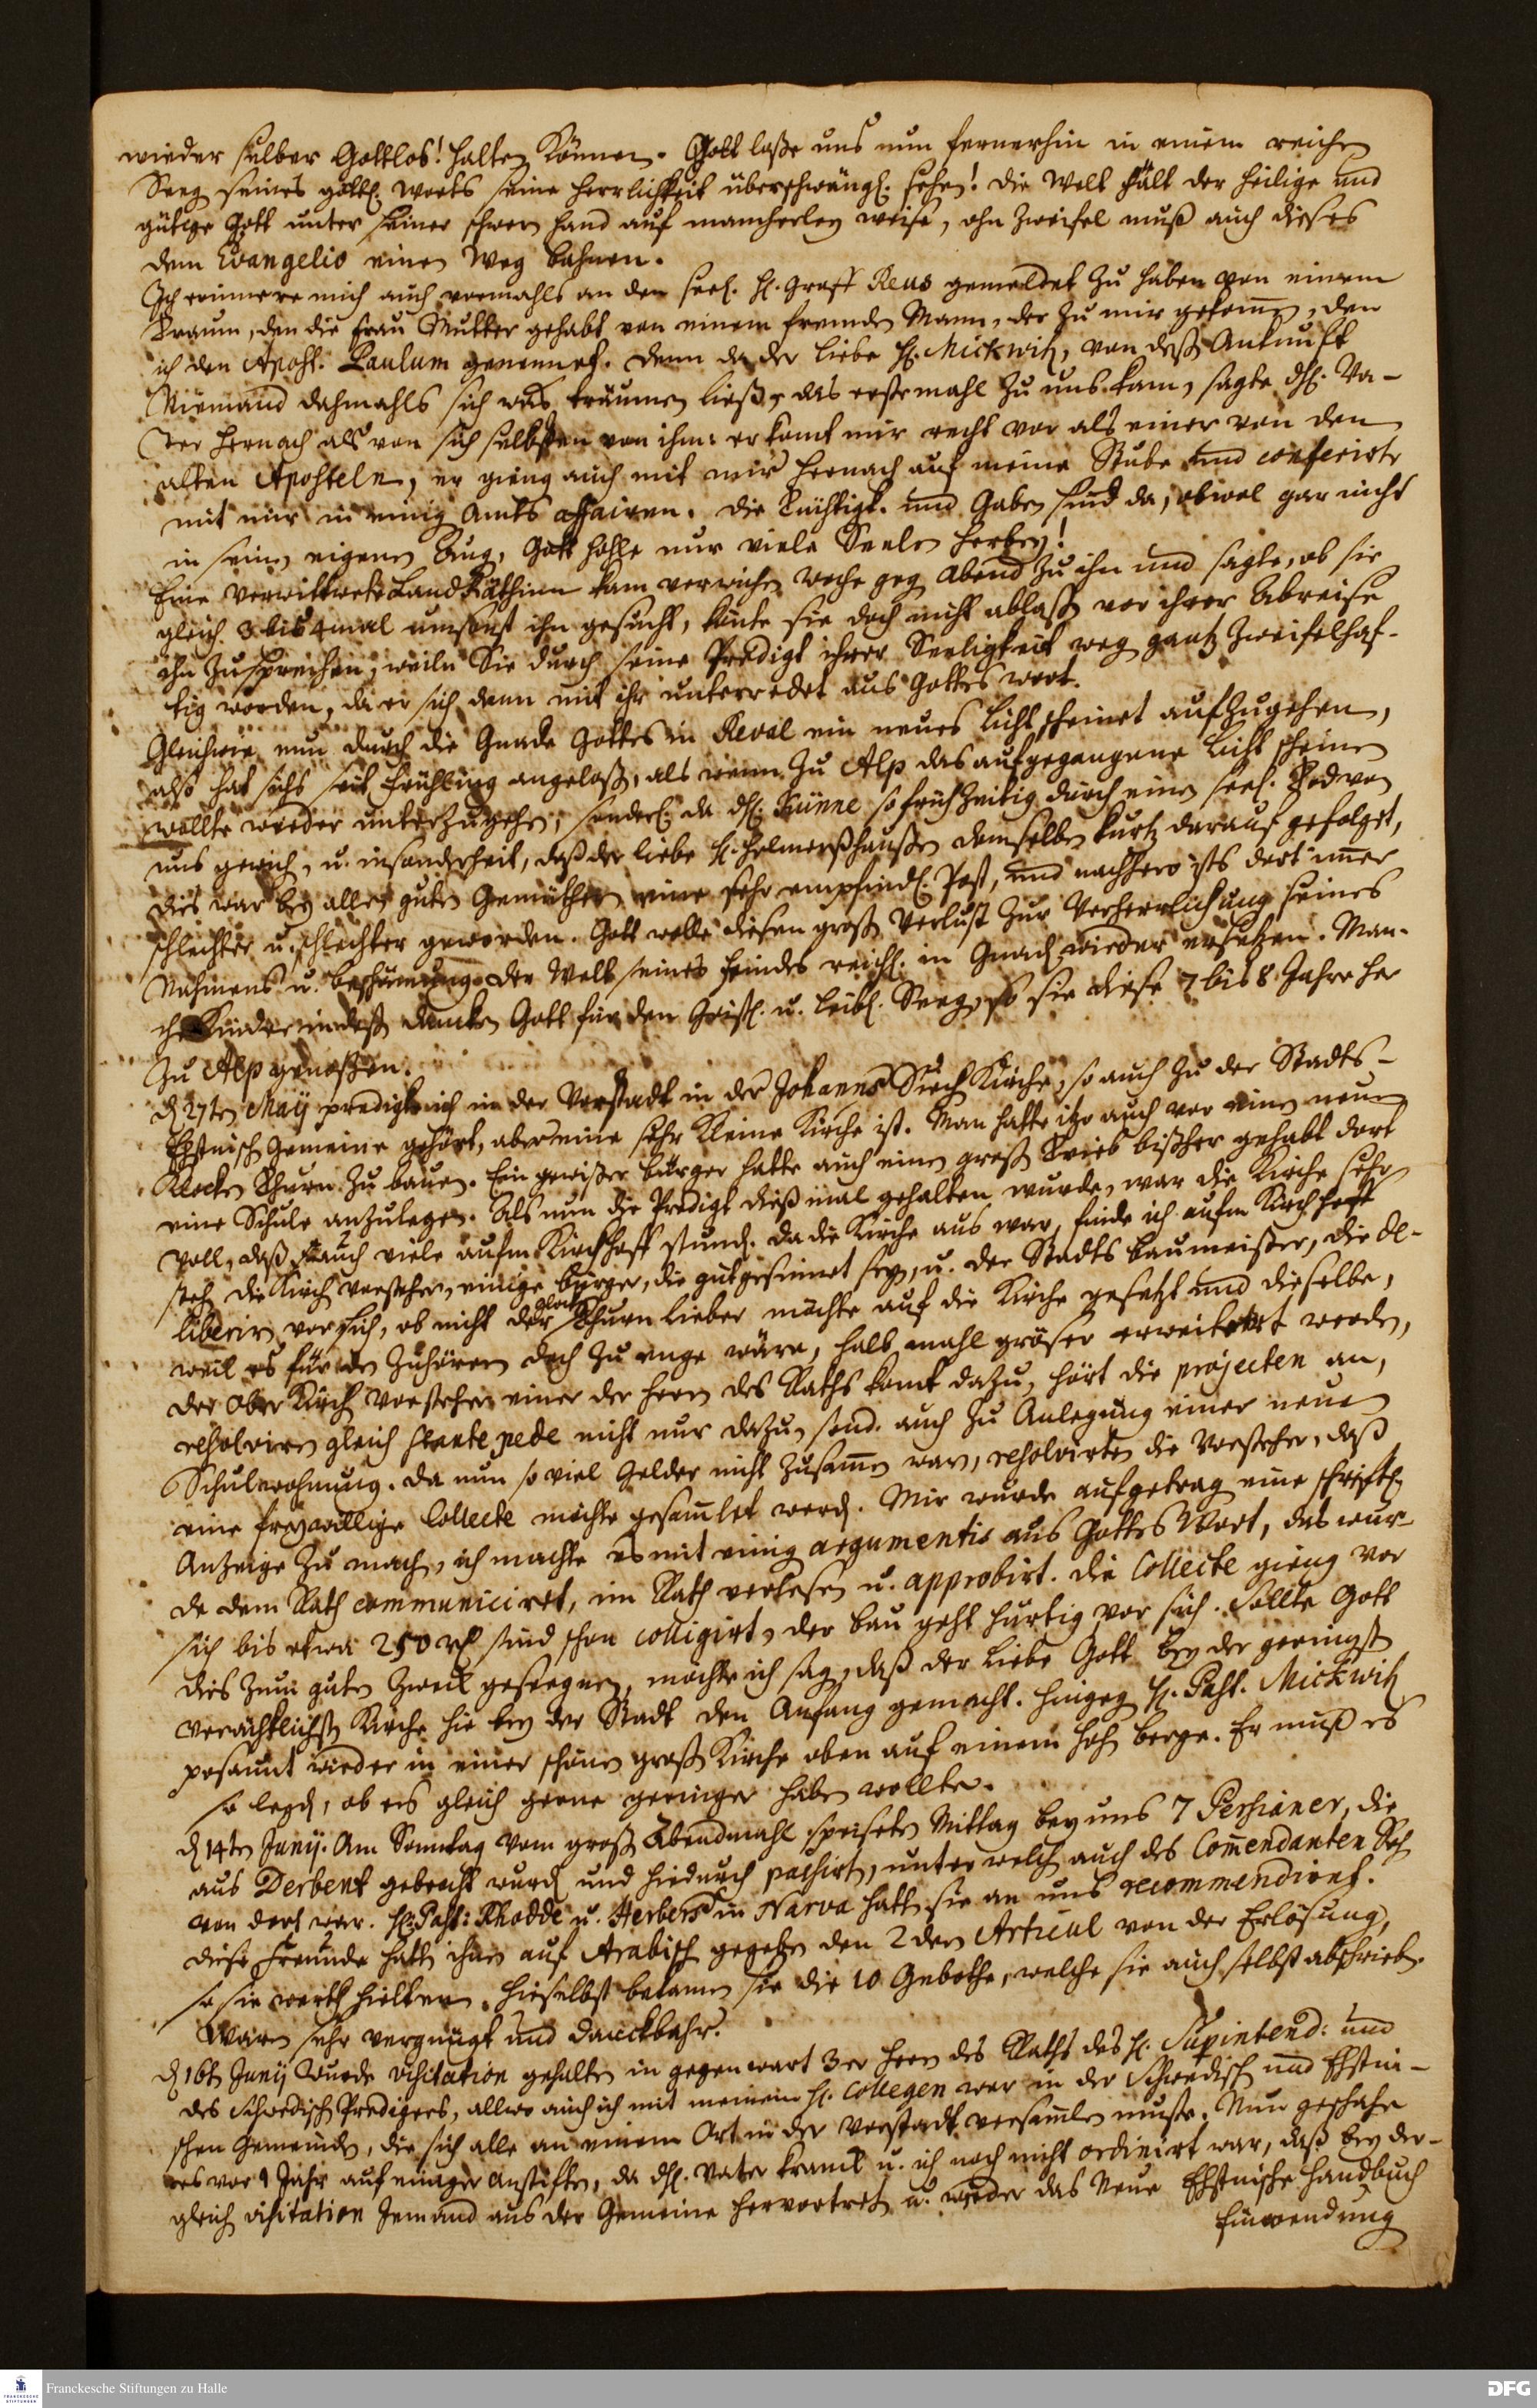 wieder selber Gottlos! halten können. Gott laße uns nun fernerhin in einem reichen
Seeg seines göttl. worts seine Herrlichkeit überschwängl. sehen! die Welt hält der heilige und
gütige Gott unter seiner schwer hand auf mancherley weise, ohn Zweifel muß auch dieses
dem Evangelio einen Weg bahnen.
Ich erinnere mich auch vormahls an den seel. H. Graff Reus gemeldet zu haben von einem
Traum, den die Frau Mutter gehabt von einem fremden Mann, der zu mir gekommen, den
ich den Apost. Paulum genennet. Denn da der liebe H. Mickwitz, von deß Ankunfft
Niemand dahmahls sich was träumen ließ, das erste mahl zu uns kam, sagte dH. Va-
ter hernach als von sich selbsten von ihm: er komt mir recht vor als einer von den
alten Aposteln, er gieng auch mit mir hernach auf meine Stube und conferirte
mit mir in einig Amts affairen. Die Tüchtigk. und Gaben sind da, obwol gar nicht
in seinen eigenen Aug, Gott hohle nur viele Seelen herbey!
Eine verwittwete Land Räthinn kam verwichene woche geg Abend zu ihn und sagte, ob sie
gleich 3 bis 4 mal umsonst ihn gesucht, könte sie doch nicht ablaßen vor ihrer Abreise
ihn zu sprechen, weiln Sie durch seine Predigt ihrer Seeligkeit weg gantz zweifelhaf-
tig worden, da er sich denn mit ihr unterredet aus Gottes wort.
Gleichwie nun durch die Gnade Gottes in Reval ein neues Licht scheinet aufzugehen,
also hat sichs seit Frühling angelaßen, als wenn zu Alp das aufgegangene Licht scheinen
wollte wieder unterzugehen, sonderl. da dH. Künne so frühzeitig durch einen seel. Tod von
uns gewich, u. insonderheit, daß der liebe H. Helmershaußen demselben kurtz darauf gefolget,
dies war bey allen guten Gemüthern eine sehr empfindl. Post, und nachhero ists dort immer
schlechter u. schlechter geworden. Gott wolle diesen groß Verlust zur Verherrlichung seines
Nahmens u. beschämung der Welt seines Feindes reichl. in Gnad wieder ersetzen. Man-
che Kinder indeß dancken Gott für den Geistl. u. leibl. Seeg, so sie diese 7 bis 8 Jahre her
zu Alp genoßen.
d 27ten Maij predigte ich in der Vorstadt in der Johannes Siech Kirche, so auch zu der Stadts-
Ehstnisch Gemeine gehört, aber eine sehr kleine Kirche ist. Man hatte itzo auch vor einen neuen
Klocken Thurn zu bauen. Ein gewißer Bürger hatte auch einen groß Trieb bißher gehabt dort
eine Schule anzulegen. Als nun die Predigt dießmal gehalten wurde, war die Kirche sehr
voll, daß auch viele aufm Kirchhoff stund. Da die Kirche aus war, finde ich aufm Kirchhoff
steh die Kirch vorsteher, einige Bürger, die gutgesinnet seyn, u. der Stadts Baumeister, die de-
liberiren vor sich, ob nicht der Glock Thurn lieber möchte auf die Kirche gesetzt und dieselbe,
weil es für den Zuhörern doch zu enge wäre, halb mahl größer erweitert werden,
der Ober Kirch Vorsteher einer der Herrn des Raths komt dazu, hört die projecten an,
resolviren gleich stante pede nicht nur dazu, sond. auch zu Anlegung einer neuen
Schulwohnung. Da nun so viel Gelder nicht zusammen waren, resolvirten die Vorsteher, daß
eine freywillige Collecte möchte gesammlet werd. Mir wurde aufgetrag eine schriftl.
Anzeige zu mach, ich machte es mit einig argumentis aus Gottes Wort, das wur-
de dem Rath communiciret, im Rath verlesen u. approbirt. Die Collecte gieng vor
sich bis etwa 250 rl sind schon colligirt, der bau geht hurtig vor sich. Sollte Gott
dies zum guten Zweck geseegnen, möchte ich sag, daß der liebe Gott bey der geringst
verächtlichst Kirche hie bey der Stadt den Anfang gemacht. Hingeg H. Past. Mickwitz
posaunt wieder in einer schönen groß Kirche oben auf einem hoh berge. Er muß es
so legd, ob ers gleich gerne geringer haben wollte.
d 14ten Junij. Am Sonntag vom groß Abendmahl speiseten Mittag bey uns 7 Persianer, die
aus Derbent gebracht wurd und hiedurch passirt, unter welch auch des Commendanten Soh
von dort war. HH. Past: Rhodde u. Herbers in Narva hatt sie an uns recommendiret.
diese Freunde hatt ihnen auf Arabisch gegeben den 2 den Articul von der Erlösung,
so sie werth hielten. Hieselbst bekamen sie die 10 Gebothe, welche sie auch selbst abschrieb.
Waren sehr vergnügt und danckbahr.
d 16t Junij wurde visitation gehalten in gegenwart 3er Herrn des Raths des H. Supintend: und
des Schwedisch Predigers, allwo auch ich mit meinem H. Collegen war in der Schwedisch und Ehstni-
schen Gemeinde, die sich alle an einem Ort in der Vorstadt versammlen muste. Nun geschahe
es vor 1 Jahr auf einiger anstiften, da dH. Vater kranck u. ich noch nicht ordinirt war, daß bey der-
gleich visitation Jemand aus der Gemeine hervortret u. wieder das Neue Ehstnische Handbuch
Einwendung
Franckesche Stiftungen zu Halle
DFG